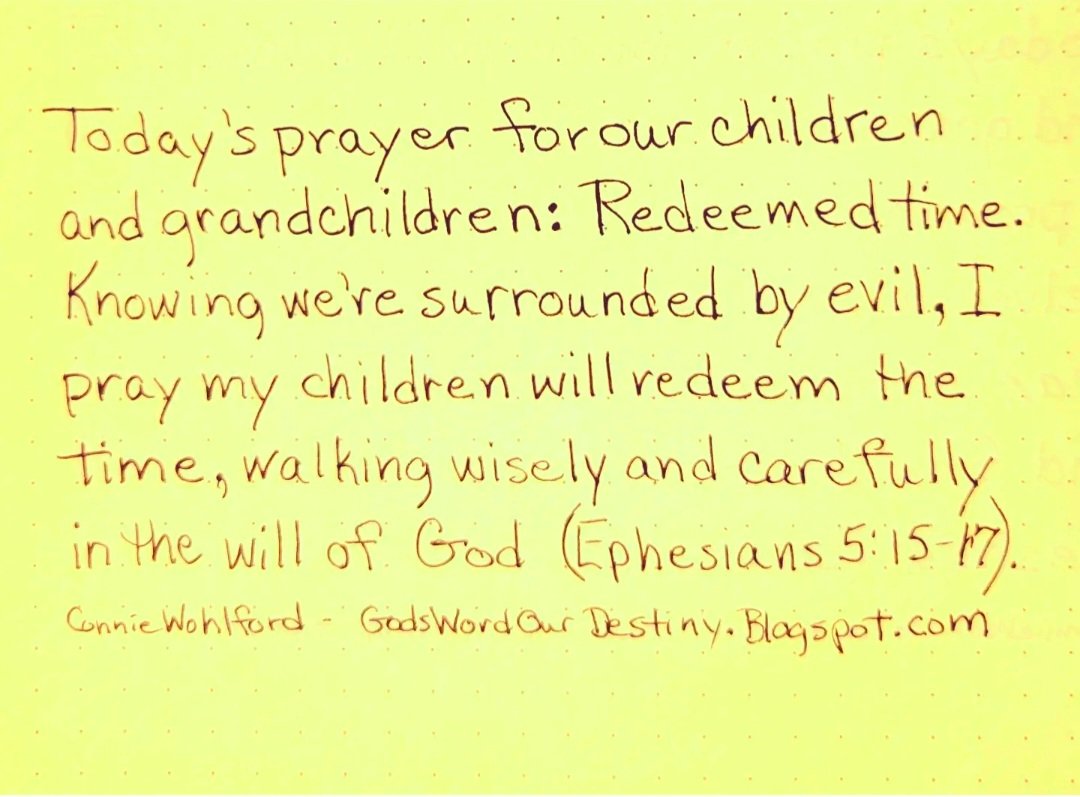 Today's prayer for our children
and grandchildren: Redeemed time.
Knowing we're surrounded by evil, I
pray my children will redeem the
time, walking wisely and carefully
in the will of God (Ephesians 5:15-17).
Connie Wohlford - GodsWordOurDestiny.Blogspot.com